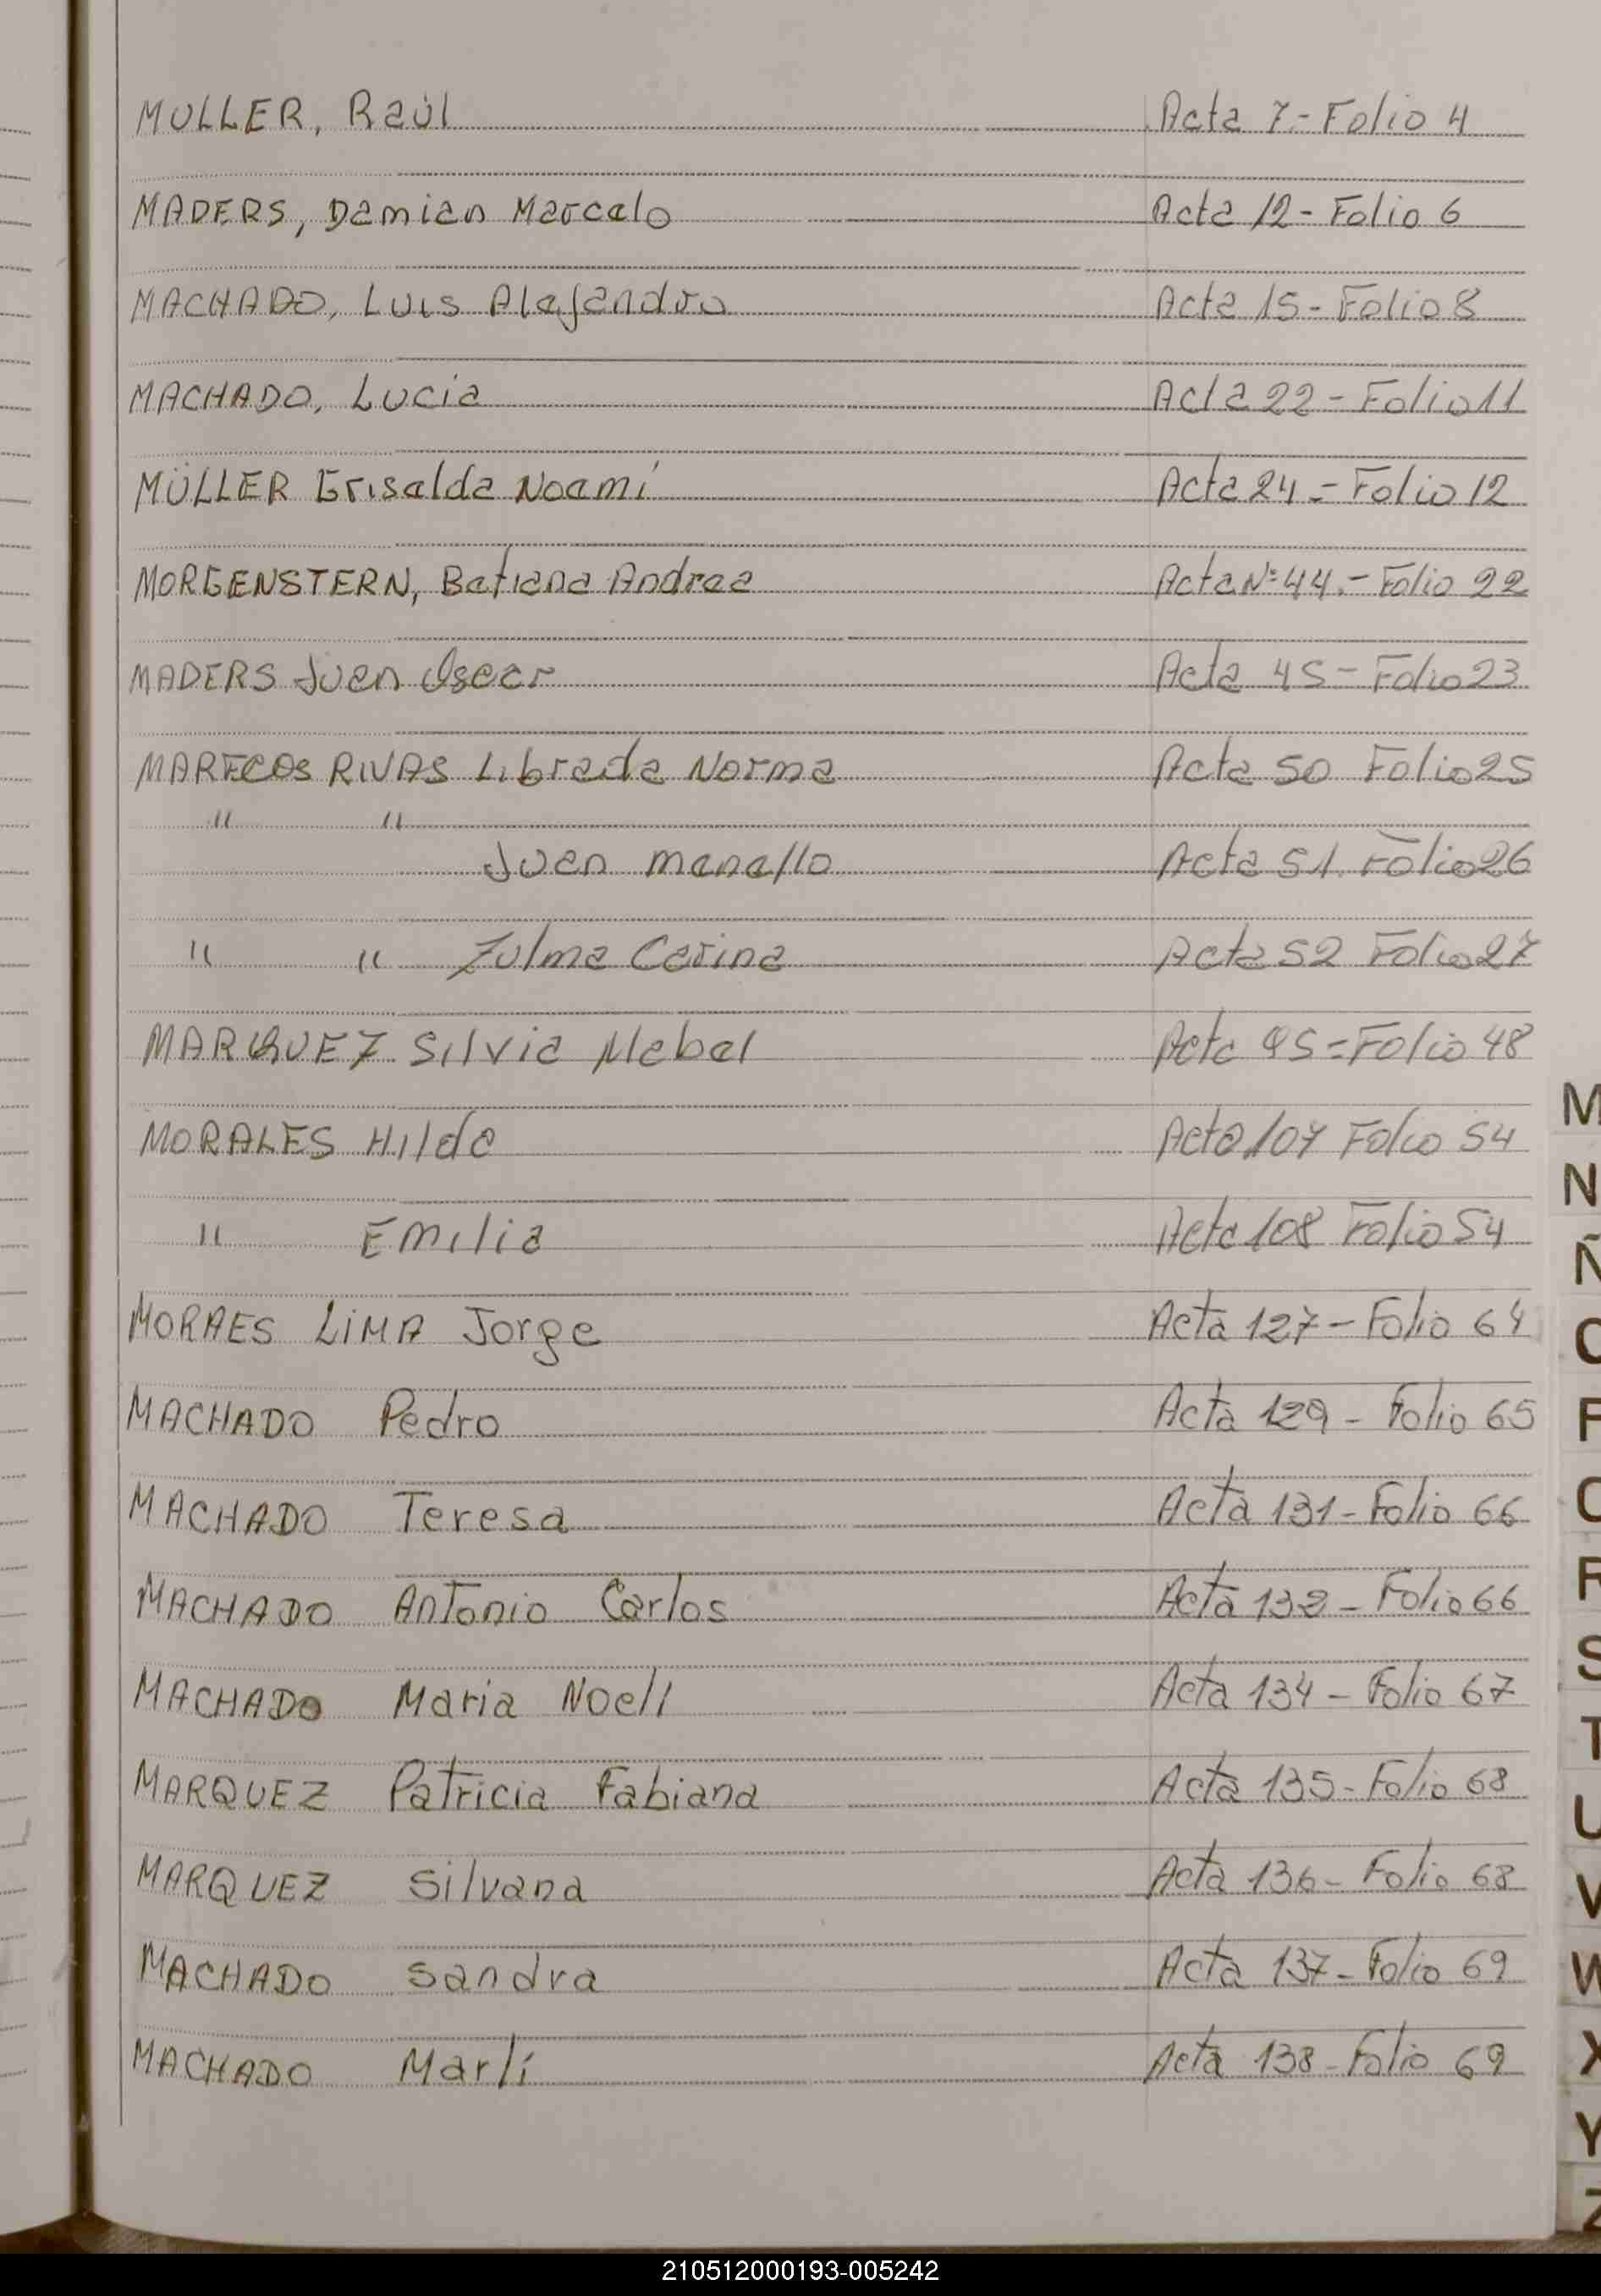 MULLER, Raúl Acta 7.- Folio 4
MADERS, Damian Marcelo Acta 12 - Folio 6
MACHADO, Luis Alejandro Acta 15 - Folio 8
MACHADO, Lucia Acta 22 - Folio 11
MÜLLER Grisalda Noemí Acta 24 = Folio 12
MORGENSTERN, Batiana Andrea Acta Nº 44.- Folio 22
MADERS Juan Oscar Acta 45 - Folio 23
MARECOS RIVAS Librada Norma Acta 50 Folio 25
" "
Juan Acta 51. Folio 26
" " Zulma Carina Acta 52 Folio 27
MARQUEZ Silvia Mabel Acta 95 = Folio 48
MORALES Hilda Acta 107 Folio 54
" Emilia Acta 108 Folio 54
MORAES LIMA Jorge Acta 127 - Folio 64
MACHADO Pedro Acta 129 - Folio 65
MACHADO Teresa Acta 131 - Folio 66
MACHADO Antonio Carlos Acta 132 - Folio 66
MACHADO Maria Noeli Acta 134 - Folio 67
MARQUEZ Patricia Fabiana Acta 135 - Folio 68
MARQUEZ Silvana Acta 136 - Folio 68
MACHADO Sandra Acta 137 - Folio 69
MACHADO Marlí Acta 138 - Folio 69
M
N
Ñ
O
P
Q
R
S
T
U
V
W
X
Y
Z
210512000193-005242